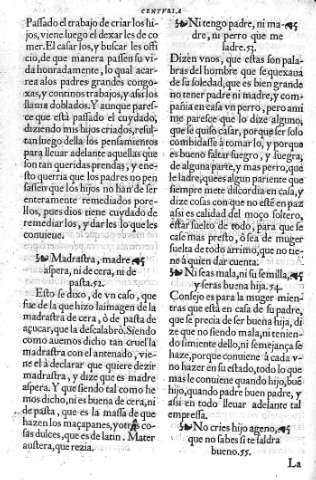 CENTVRIA
Passado el trabajo de criar los hi-
jos, viene luego el dexarles de co
mer. El casar los, y buscar les offi
cio, de que manera passen su vi-
da honradamente, lo qual acar-
rea a los padres grandes congo-
xas, y continos trabajos, y assi los
llama doblados. Y aunque pares-
ce que está passado el cuydado,
diziendo mis hijos criados, resul-
tan luego dello los pensamientos
para lleuar adelante aquellas que
son tan queridas prendas, y en e-
sto querria que los padres no pen
sassen que los hijos no han de ser
enteramente remediados por e-
llos, pues dios tiene cuydado de
remediar los, y dar les lo que les
conuiene.
Madrastra, madre
aspera, ni de cera, ni de
pasta. 52.
Esto se dixo, de vn caso, que
fue de la que hizo la imagen de la
madrastra de cera, ò de pasta de
açucar, que la descalabrò. Siendo
como auemos dicho tan cruel la
madrastra con el antenado, vie-
ne el à declarar que quiere dezir
madrastra, y dize que es madre
aspera. Y que siendo tal como he
mos dicho, ni es buena de cera, ni
de pasta, que es la massa de que
hazen los maçapanes, y otras co-
sas dulces, que es de latin. Mater
austera, que rezia.
Ni tengo padre, ni ma-
dre, ni perro que me
ladre. 53.
Dizen vnos, que estas son pala-
bras del hombre que se quexaua
de su soledad, que es bien grande
no tener padre ni madre, y com-
pañia en casa vn perro, pero ami
me paresce que lo dize alguno,
que se quiso casar, por que ser solo
combidasse à tomar lo, y porque
es bueno faltar suegro, y suegra,
de alguna parte, y mas perro, que
le ladre, ques algun pariente que
siempre mete discordia en casa, y
dize cosas con que no esté en paz
assi es calidad del moço soltero,
estar suelto de todo, para que se
case mas presto, ò sea de muger
suelta de todo arrimo, que no tie-
ne à quien dar cuenta.
Ni seas mala, ni su semilla,
y seras buena hija. 54.
Consejo es para la muger mien-
tras que está en casa de su padre,
que se precia de ser buena hija, di
ze que no siendo mala, ni tenien-
do simiente dello, ni semejança se
haze, porque conuiene à cada v-
no hazer en su estado, todo lo que
mas le conuiene quando hijo, buẽ
hijo, quando padre buen padre, y
assi en todo lleuar adelante tal
empressa.
No cries hijo ageno,
que no sabes si te saldra
bueno. 55.
La